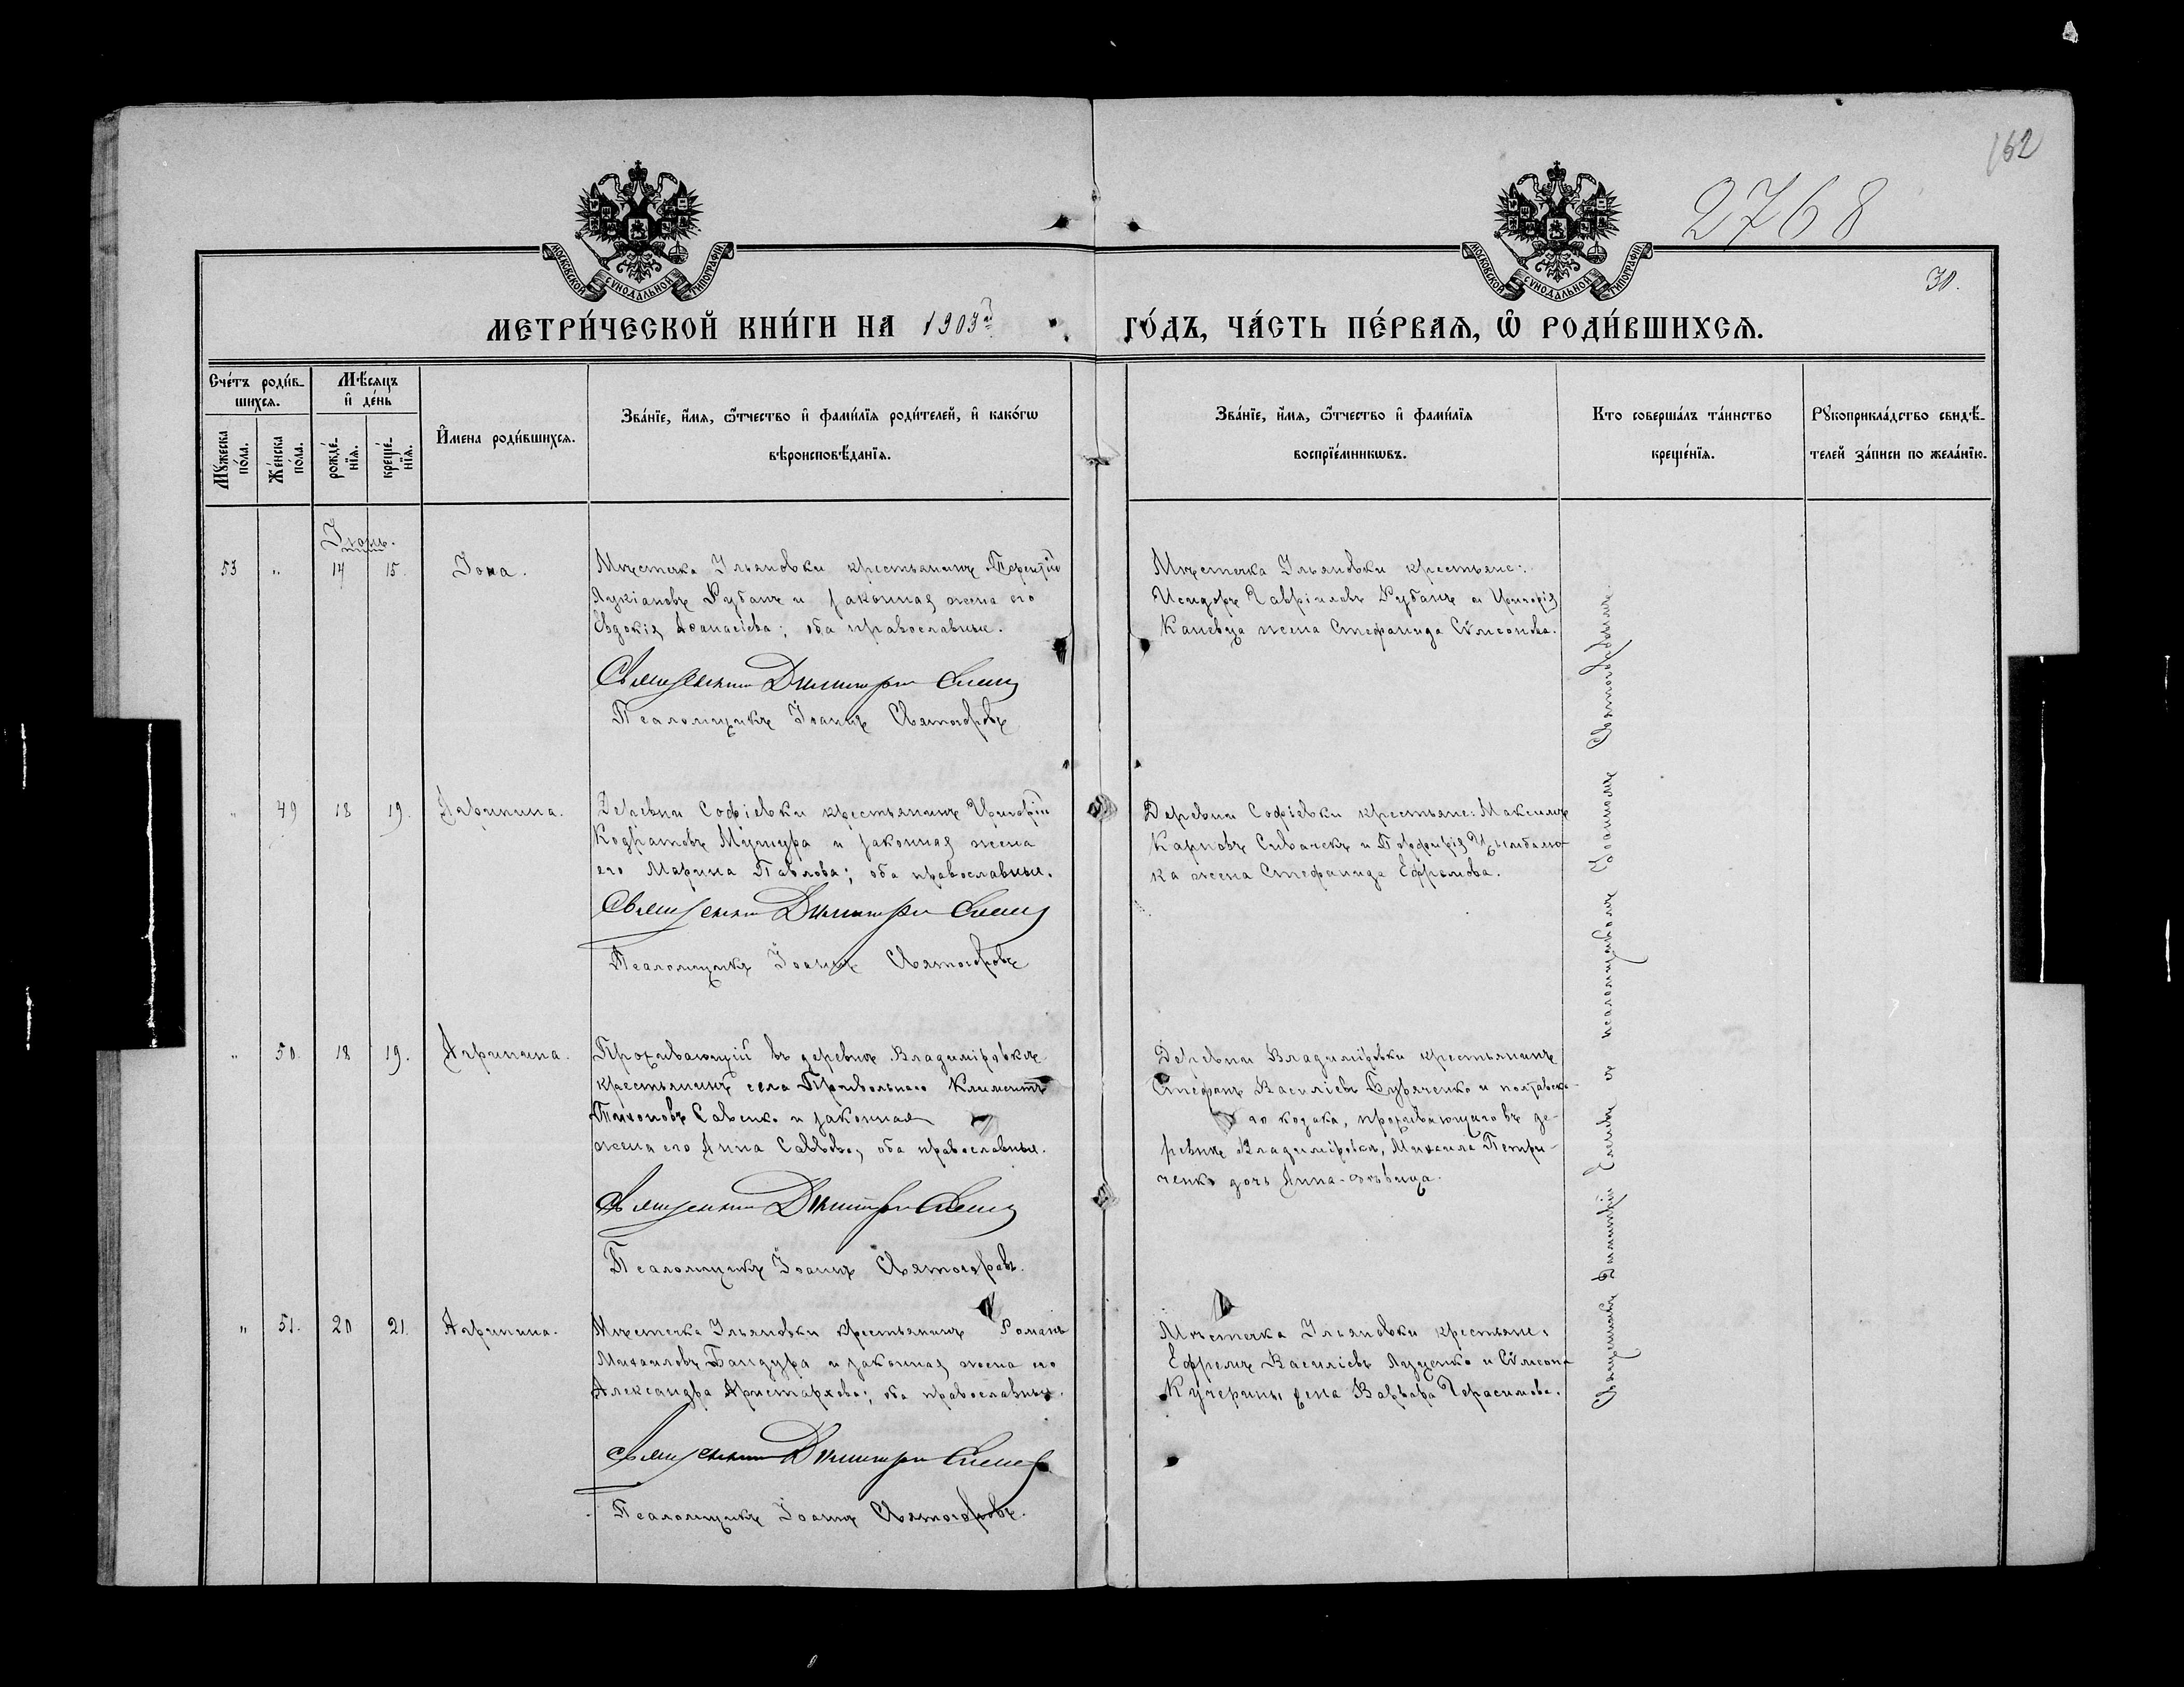 162
2768
30.
МОСКОВСКОЙ СѴНОДАЛЬНОЙ ТИПОГРАФІИ
МОСКОВСКОЙ СѴНОДАЛЬНОЙ ТИПОГРАФІИ
МЕТРИ́ЧЕСКОЙ КНИ́ГИ НА 1903й ГО́ДЪ, ЧА́СТЬ ПЕ́РВАѦ, Ѡ РОДИ́ВШИХСѦ.
Сче́тъ роди́в-
шихсѧ.
Мѣ́сяцъ
и҆ де́нь
Мꙋ́жеска
по́ла.
Же́нска
по́ла.
рожде́-
нїѧ.
креще́-
нїѧ.
И҆мена роди́вшихсѧ.
Зва́нїе, и҆́мѧ, ѻ҆́тчество и҆ фами́лїѧ роди́телей, и҆ како́гѡ
вѣроисповѣ́данїѧ.
Зва́нїе, и҆́мѧ, ѻ҆́тчество и҆ фами́лїѧ
воспрїе́мникѡвъ.
Кто соверша́лъ та́инство
креще́нїѧ.
Рꙋкоприкла́дство свидѣ́-
телей за́писи по жела́нїю.
Іюнь.
53 " 14 15. Іона.
Мѣстечка Ульяновки крестьянинъ
Лукіановъ Рубанъ и законная жена его
Евдокія Аѳанасіева; оба православные.
Священникъ Димитрій
Псаломщикъ Іоаннъ Святогоровъ
Мѣстечка Ульяновки крестьяне:
Исидоръ Гавріиловъ Рубанъ и Григорія
Каневца жена Стефанида Сѵмеонова.
" 49 18 19. Агрипина.
Деревни Софіевки крестьянинъ Григорій
Кодратовъ и законная жена
его Марина Павлова; оба православные.
Священникъ Димитрій
Псаломщикъ Іоаннъ Святогоровъ
Деревни Софіевки крестьяне: Максимъ
Карповъ Сивачекъ и Порфирія Цымбалю-
ка жена Стефанида Ефремова.
" 50. 18 19. Агрипина.
Проживающій въ деревнѣ Владиміровкѣ
крестьянинъ села Привольнаго Климентъ
Тихоновъ Савенко и законная
жена его Анна Саввова, оба православные.
Священникъ Димитрій
Псаломщикъ Іоаннъ Святогоровъ.
Деревни Владиміровки крестьянинъ
Стефанъ Василіевъ Буряченко и полтавска-
го козака, проживающаго въ де-
ревнѣ Владиміровкѣ, Михаила Петри-
ченко дочь Анна-дѣвица.
" 51. 20 21. Агрипина.
Мѣстечка Ульяновки крестьянинъ Романъ
Михаиловъ Бандура и законная жена его
Александра Аристархова; оба православные.
Священникъ Димитрій
Псаломщикъ Іоаннъ Святогоровъ.
Мѣстечка Ульяновки крестьяне:
Ефремъ Василіевъ Луценко и Сѵмеона
Кучерины жена Варвара Герасимова.
Священникъ Димитрій съ псаломщикомъ Іоанномъ Святогоровымъ